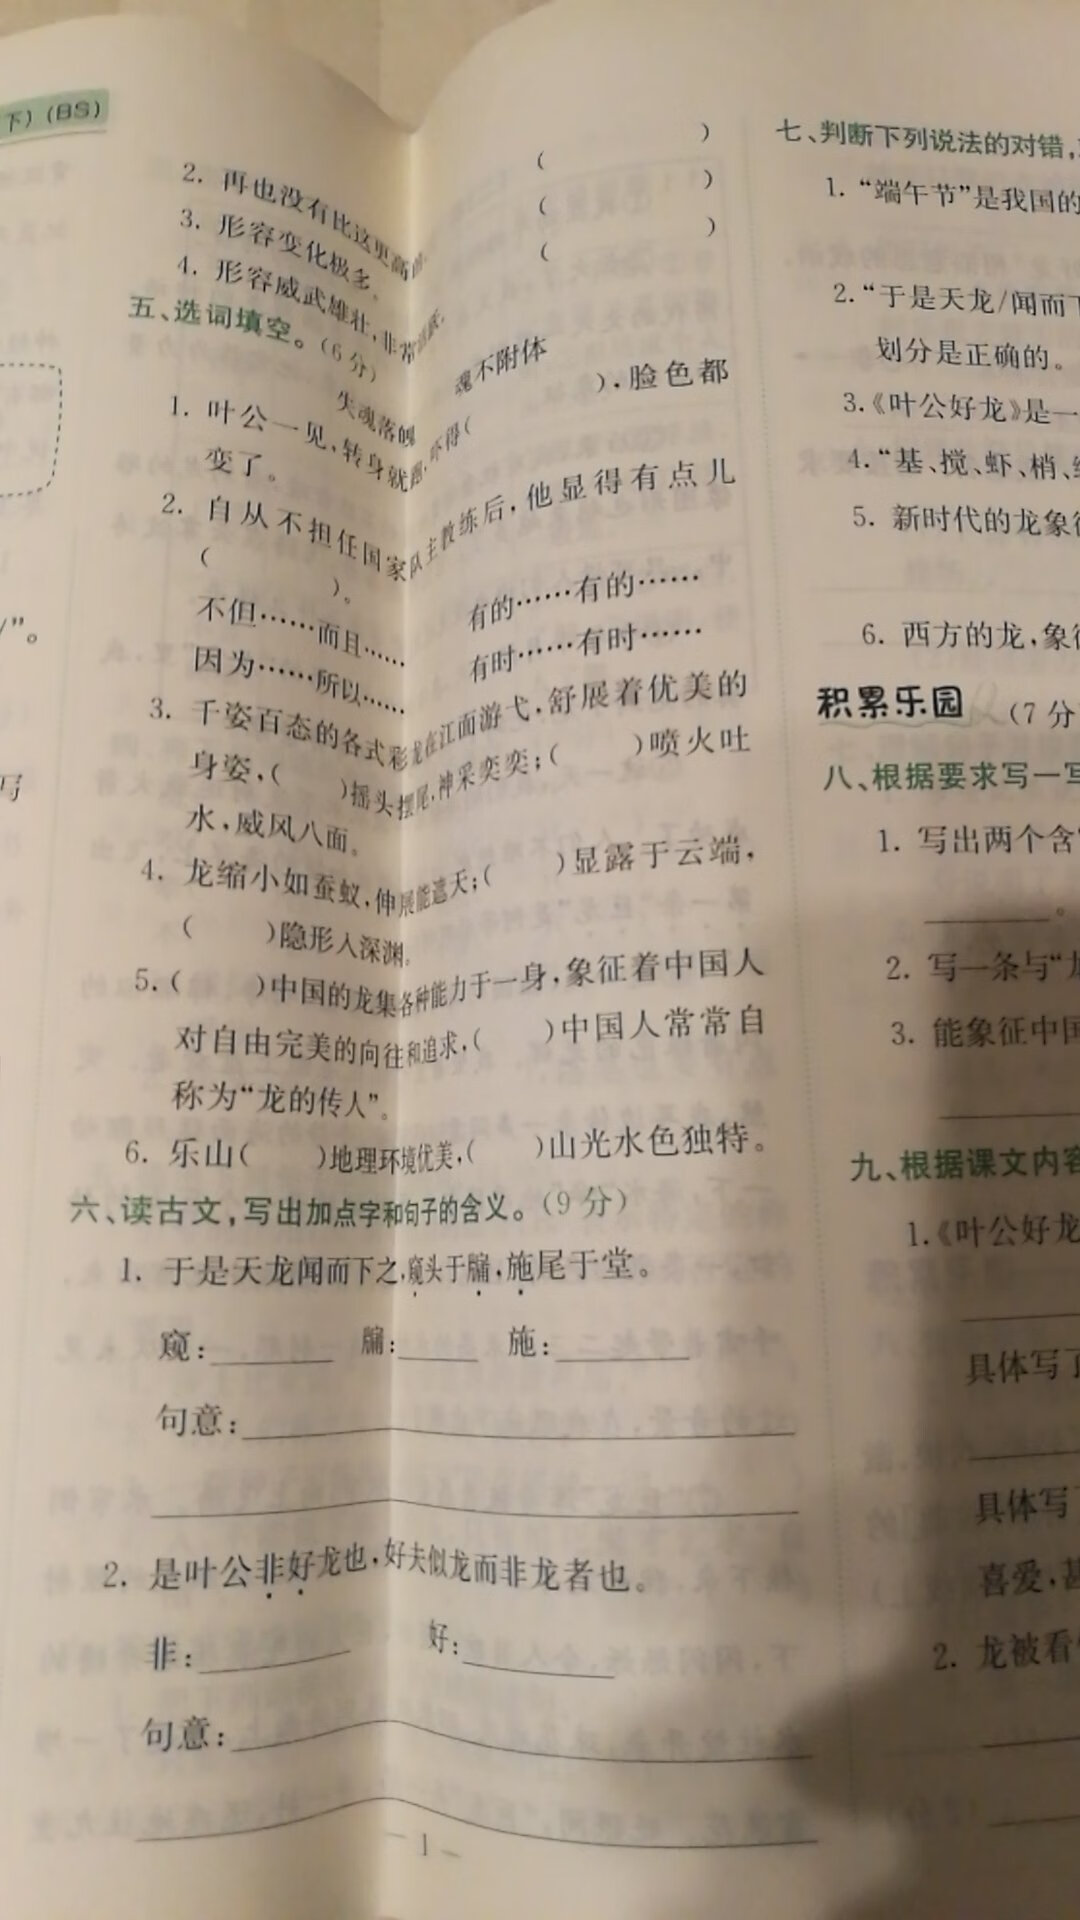 下）（BS）
”。
写
（　　）
2. 再也没有比这更高
（　　）
3. 形容变化极多。
（　　）
4. 形容威武雄壮，非常
五、选词填空。（6分）
失魂落魄　魂不附体
1. 叶公一见，转身就跑，吓得（　　），脸色都
变了。
2. 自从不担任国家队主教练后，他显得有点儿
（　　）。
不但……而且……　有的……有的……
因为……所以……　有时……有时……
3. 千姿百态的各式彩龙在江面游弋，舒展着优美的
身姿，（　　）摇头摆尾，神采奕奕；（　　）喷火吐
水，威风八面。
4. 龙缩小如蚕蚁，伸展能遮天；（　　）显露于云端，
（　　）隐形入深渊。
5.（　　）中国的龙集各种能力于一身，象征着中国人
对自由完美的向往和追求，（　　）中国人常常自
称为“龙的传人”。
6. 乐山（　　）地理环境优美，（　　）山光水色独特。
六、读古文，写出加点字和句子的含义。（9分）
1. 于是天龙闻而下之，窥头于牖，施尾于堂。
窥：　牖：　施：
句意：
2. 是叶公非好龙也，好夫似龙而非龙者也。
非：　好：
句意：
— 1 —
七、判断下列说法的对错，
1. “端午节”是我国的
2. “于是天龙/闻而下
划分是正确的。
3.《叶公好龙》是一
4. “基、搅、虾、梢、
5. 新时代的龙象
6. 西方的龙，象
积累乐园　（7分
八、根据要求写一写
1. 写出两个含
。
2. 写一条与“
3. 能象征中国
九、根据课文内容
1.《叶公好龙
具体写了
具体写
喜爱，甚
2. 龙被看